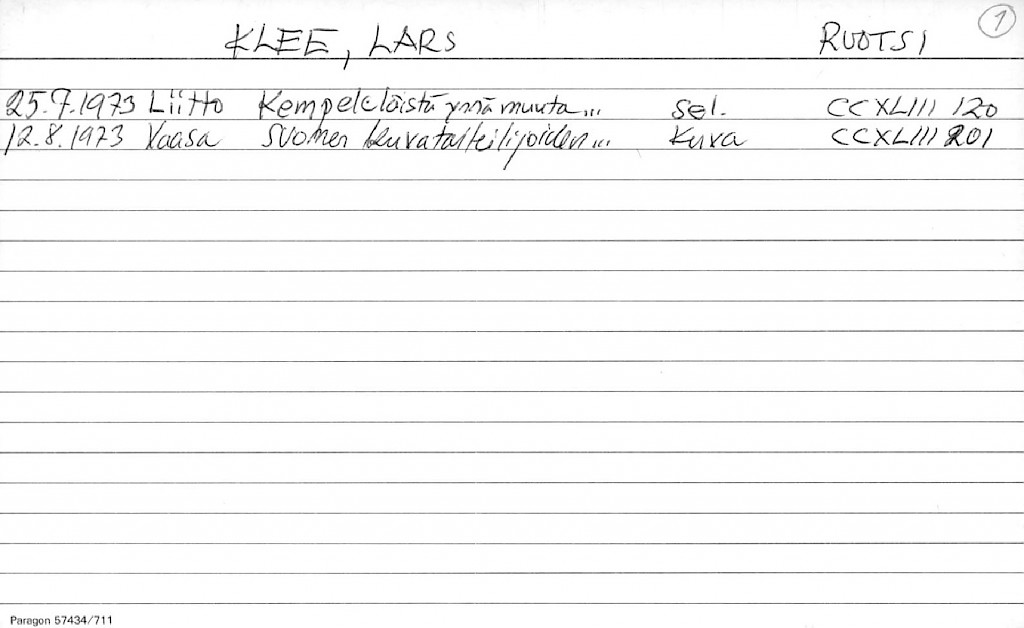 KLEE, LARS RUOTSI 1
25.7.1973 Liitto Kempeleläistä ynnä muuta... sel. CCXLIII 120
12.8.1973 Vaasa Suomen kuvataiteilijoiden... kuva CCXLIII 201
Paragon 57434/711